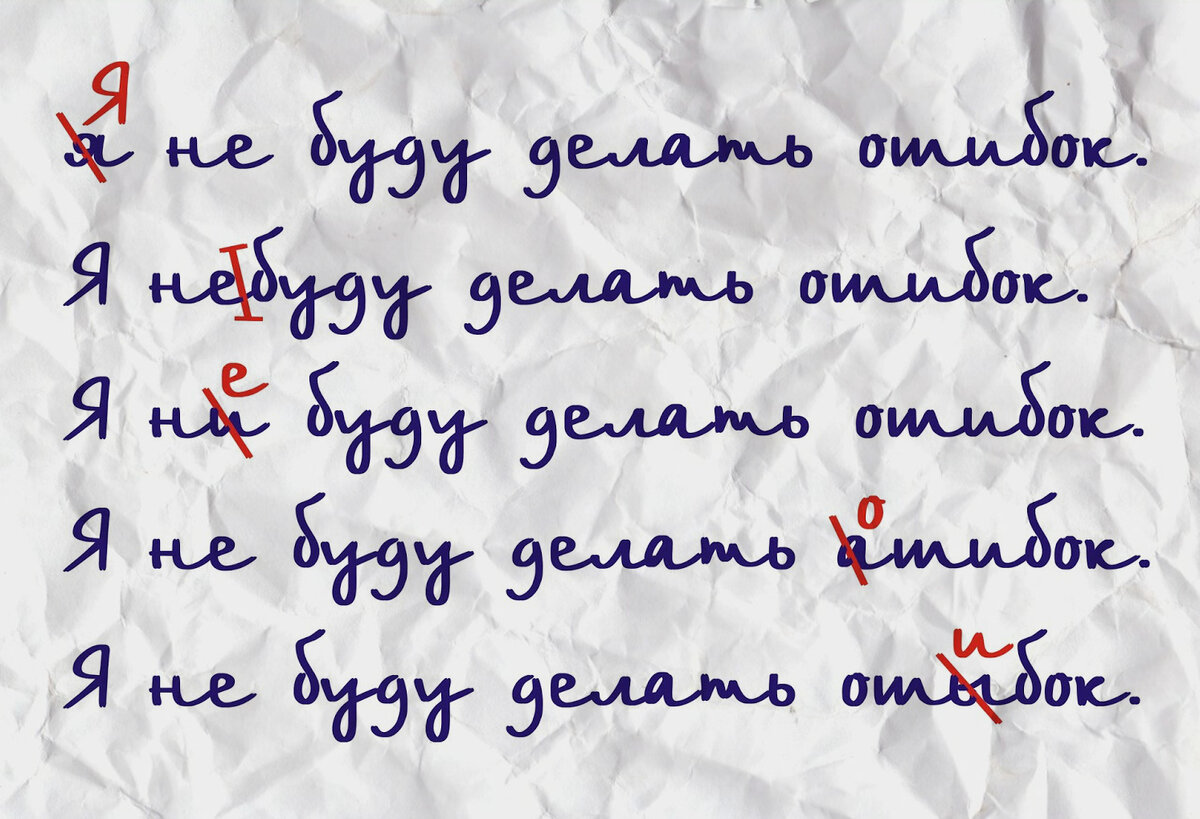 Я
я не буду делать ошибок.
Я небуду делать ошибок.
е
Я ни буду делать ошибок.
о
Я не буду делать ашибок.
и
Я не буду делать ошыбок.